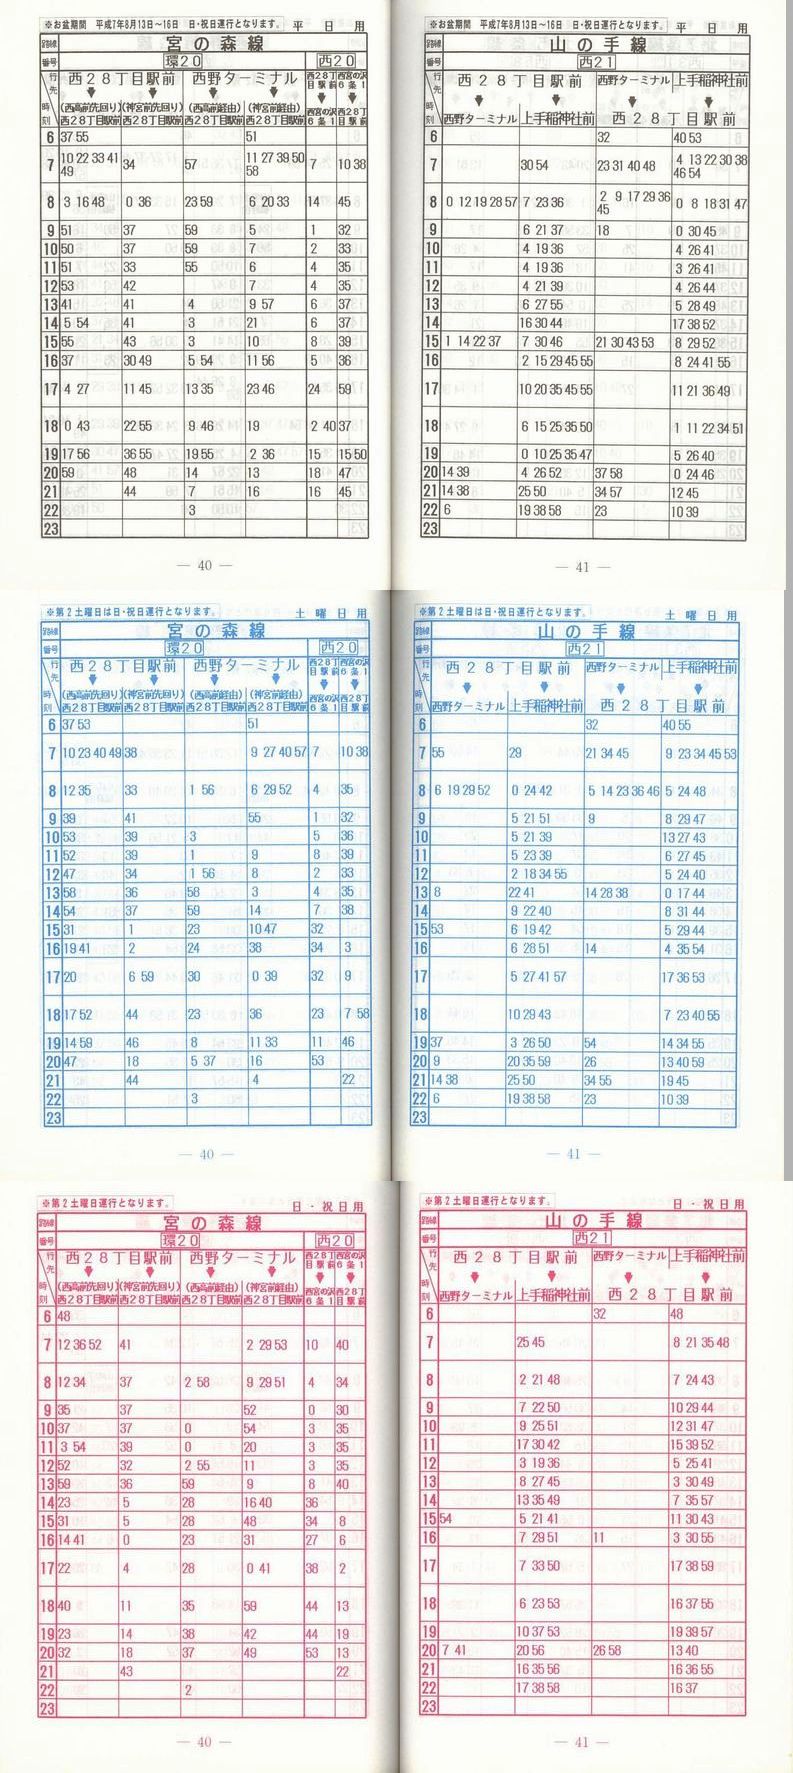 ※お盆期間 平成7年8月13日～16日 日・祝日運行となります。 平日用
路線 宮の森線
番号 環20 西20
行先 西28丁目駅前 西野ターミナル 西28丁目駅前 西宮の沢6条1
時刻 (西高前先回り) (神宮前先回り) (西高前経由) (神宮前経由) 西宮の沢6条1 西28丁目駅前
西28丁目駅前 西28丁目駅前 西28丁目駅前 西28丁目駅前
6 37 55 51
7 10 22 33 41 49 34 57 11 27 39 50 58 7 10 38
8 3 16 48 0 36 23 59 6 20 33 14 45
9 51 37 59 5 1 32
10 50 37 59 7 2 33
11 51 33 55 6 4 35
12 53 42 7 4 35
13 41 41 4 9 57 6 37
14 5 54 41 3 21 6 37
15 55 43 3 10 8 39
16 37 30 49 5 54 11 56 5 36
17 4 27 11 45 13 35 23 46 24 59
18 0 43 22 55 9 46 19 2 40 37
19 17 56 36 55 19 55 2 36 15 15 50
20 59 48 14 13 18 47
21 44 7 16 16 45
22 3
23
— 40 —
※お盆期間 平成7年8月13日～16日 日・祝日運行となります。 平日用
路線 山の手線
番号 西21
行先 西28丁目駅前 西野ターミナル 上手稲神社前
時刻 西野ターミナル 上手稲神社前 西28丁目駅前
6 32 40 53
7 30 54 23 31 40 48 4 13 22 30 38 46 54
8 0 12 19 28 57 7 23 36 2 9 17 29 36 45 0 8 18 31 47
9 6 21 37 18 0 30 45
10 4 19 36 4 26 41
11 4 19 36 3 26 41
12 4 21 39 4 26 44
13 6 27 55 5 28 49
14 16 30 44 17 38 52
15 1 14 22 37 7 30 46 21 30 43 53 8 29 52
16 2 15 29 45 55 8 24 41 55
17 10 20 35 45 55 11 21 36 49
18 6 15 25 35 50 1 11 22 34 51
19 0 10 25 35 47 5 26 40
20 14 39 4 26 52 37 58 0 24 46
21 14 38 25 50 34 57 12 45
22 6 19 38 58 23 10 39
23
— 41 —
※第2土曜日は日・祝日運行となります。 土曜日用
路線 宮の森線
番号 環20 西20
行先 西28丁目駅前 西野ターミナル 西28丁目駅前 西宮の沢6条1
時刻 (西高前先回り) (神宮前先回り) (西高前経由) (神宮前経由) 西宮の沢6条1 西28丁目駅前
西28丁目駅前 西28丁目駅前 西28丁目駅前 西28丁目駅前
6 37 53 51
7 10 23 40 49 38 9 27 40 57 7 10 38
8 12 35 33 1 56 6 29 52 4 35
9 39 41 55 1 32
10 53 39 3 5 36
11 52 39 1 9 8 39
12 47 34 1 56 8 2 33
13 58 36 58 3 4 35
14 54 37 59 14 7 38
15 31 1 23 10 47 32
16 19 41 2 24 38 34 3
17 20 6 59 30 0 39 32 9
18 17 52 44 23 36 23 7 58
19 14 59 46 8 11 33 11 46
20 47 18 5 37 16 53
21 44 4 22
22 3
23
— 40 —
※第2土曜日は日・祝日運行となります。 土曜日用
路線 山の手線
番号 西21
行先 西28丁目駅前 西野ターミナル 上手稲神社前
時刻 西野ターミナル 上手稲神社前 西28丁目駅前
6 32 40 55
7 55 29 21 34 45 9 23 34 45 53
8 6 19 29 52 0 24 42 5 14 23 36 46 5 24 48
9 5 21 51 9 8 29 47
10 5 21 39 13 27 43
11 5 23 39 6 27 45
12 2 18 34 55 5 24 40
13 8 22 41 14 28 38 0 17 44
14 9 22 40 8 31 44
15 53 6 19 42 5 29 44
16 6 28 51 14 4 35 54
17 5 27 41 57 17 36 53
18 10 29 43 7 23 40 55
19 37 3 26 50 54 14 34 55
20 9 20 35 59 26 13 40 59
21 14 38 25 50 34 55 19 45
22 6 19 38 58 23 10 39
23
— 41 —
※第2土曜日運行となります。 日・祝日用
路線 宮の森線
番号 環20 西20
行先 西28丁目駅前 西野ターミナル 西28丁目駅前 西宮の沢6条1
時刻 (西高前先回り) (神宮前先回り) (西高前経由) (神宮前経由) 西宮の沢6条1 西28丁目駅前
西28丁目駅前 西28丁目駅前 西28丁目駅前 西28丁目駅前
6 48
7 12 36 52 41 2 29 53 10 40
8 12 34 37 2 58 9 29 51 4 34
9 35 37 52 0 30
10 37 37 0 54 3 35
11 3 54 39 0 20 3 35
12 52 32 2 55 11 3 35
13 59 36 59 9 8 40
14 23 5 28 16 40 36
15 31 5 28 48 34 8
16 14 41 0 23 31 27 6
17 22 4 28 0 41 38 2
18 40 11 35 59 44 13
19 23 14 38 42 44 19
20 32 18 37 49 53 13
21 43 22
22 2
23
— 40 —
※第2土曜日運行となります。 日・祝日用
路線 山の手線
番号 西21
行先 西28丁目駅前 西野ターミナル 上手稲神社前
時刻 西野ターミナル 上手稲神社前 西28丁目駅前
6 32 48
7 25 45 8 21 35 48
8 2 21 48 7 24 43
9 7 22 50 10 29 44
10 9 25 51 12 31 47
11 17 30 42 15 39 52
12 3 19 36 5 25 41
13 8 27 45 3 30 49
14 13 35 49 7 35 57
15 54 5 21 41 11 30 43
16 7 29 51 11 3 30 55
17 7 33 50 17 38 59
18 6 23 53 16 37 55
19 10 37 53 19 39 57
20 7 41 20 56 26 58 13 40
21 16 35 56 16 36 55
22 17 38 58 16 37
23
— 41 —